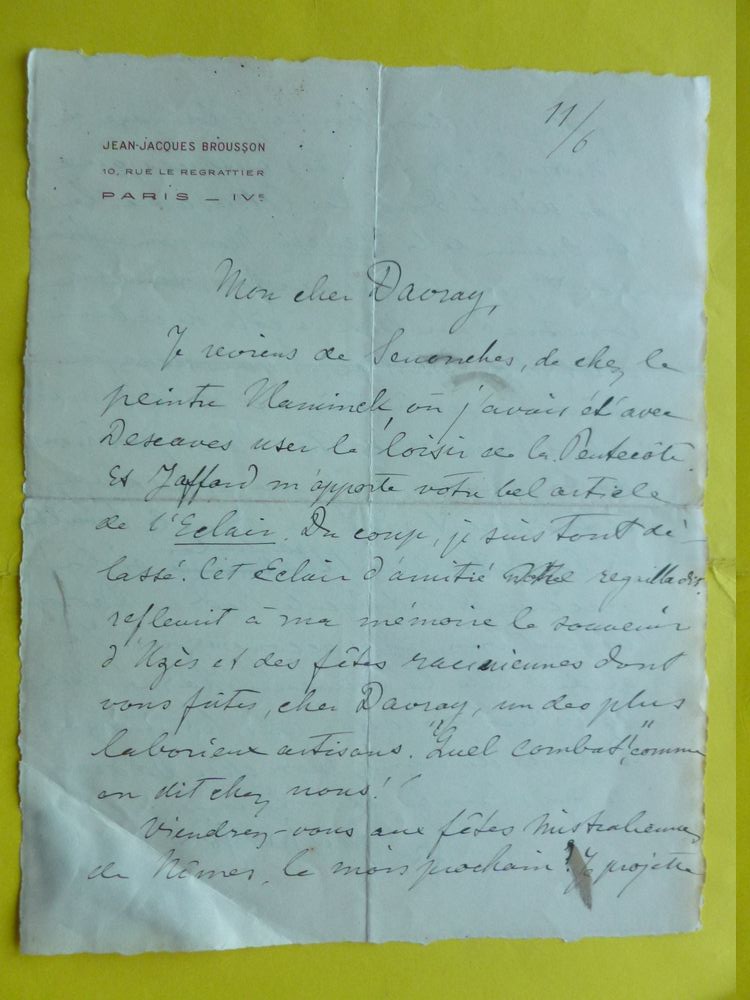 JEAN-JACQUES BROUSSON
10, RUE LE REGRATTIER
PARIS — IVE
11/6
Mon cher Davray,
Je reviens de Senonches, de chez le
peintre Vlaminck, où j'avais été avec
Descaves user le loisir de la Pentecôte.
Et Jaffard m'apporte votre bel article
de l'Eclair. Du coup, je suis tout dé-
lassé. Cet Eclair d'amitié
refleurit à ma mémoire le souvenir
d'Uzès et des fêtes raciniennes dont
vous fûtes, cher Davray, un des plus
laborieux artisans. "Quel combat!", comme
on dit chez nous!
Viendrez-vous aux fêtes mistraliennes
de Nîmes, le mois prochain? Je projette